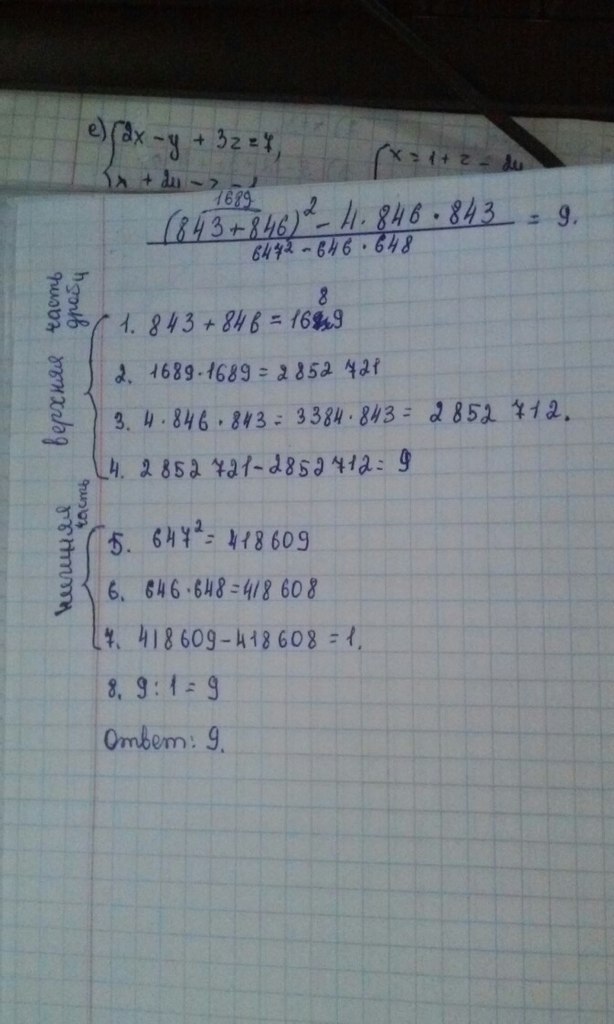 е) 2x - y + 3z = 7,
x = 1 + z - 2y
x + 2y - z = 1
1689
(843 + 846)² - 4 · 846 · 843 = 9.
647² - 646 · 648
верхняя часть дроби
1. 843 + 846 = 1689
2. 1689 · 1689 = 2852 721
3. 4 · 846 · 843 = 3384 · 843 = 2852 712.
4. 2852 721 - 2852712 = 9
нижняя часть
5. 647² = 418609
6. 646 · 648 = 418 608
7. 418609 - 418608 = 1.
8. 9 : 1 = 9
Ответ: 9.